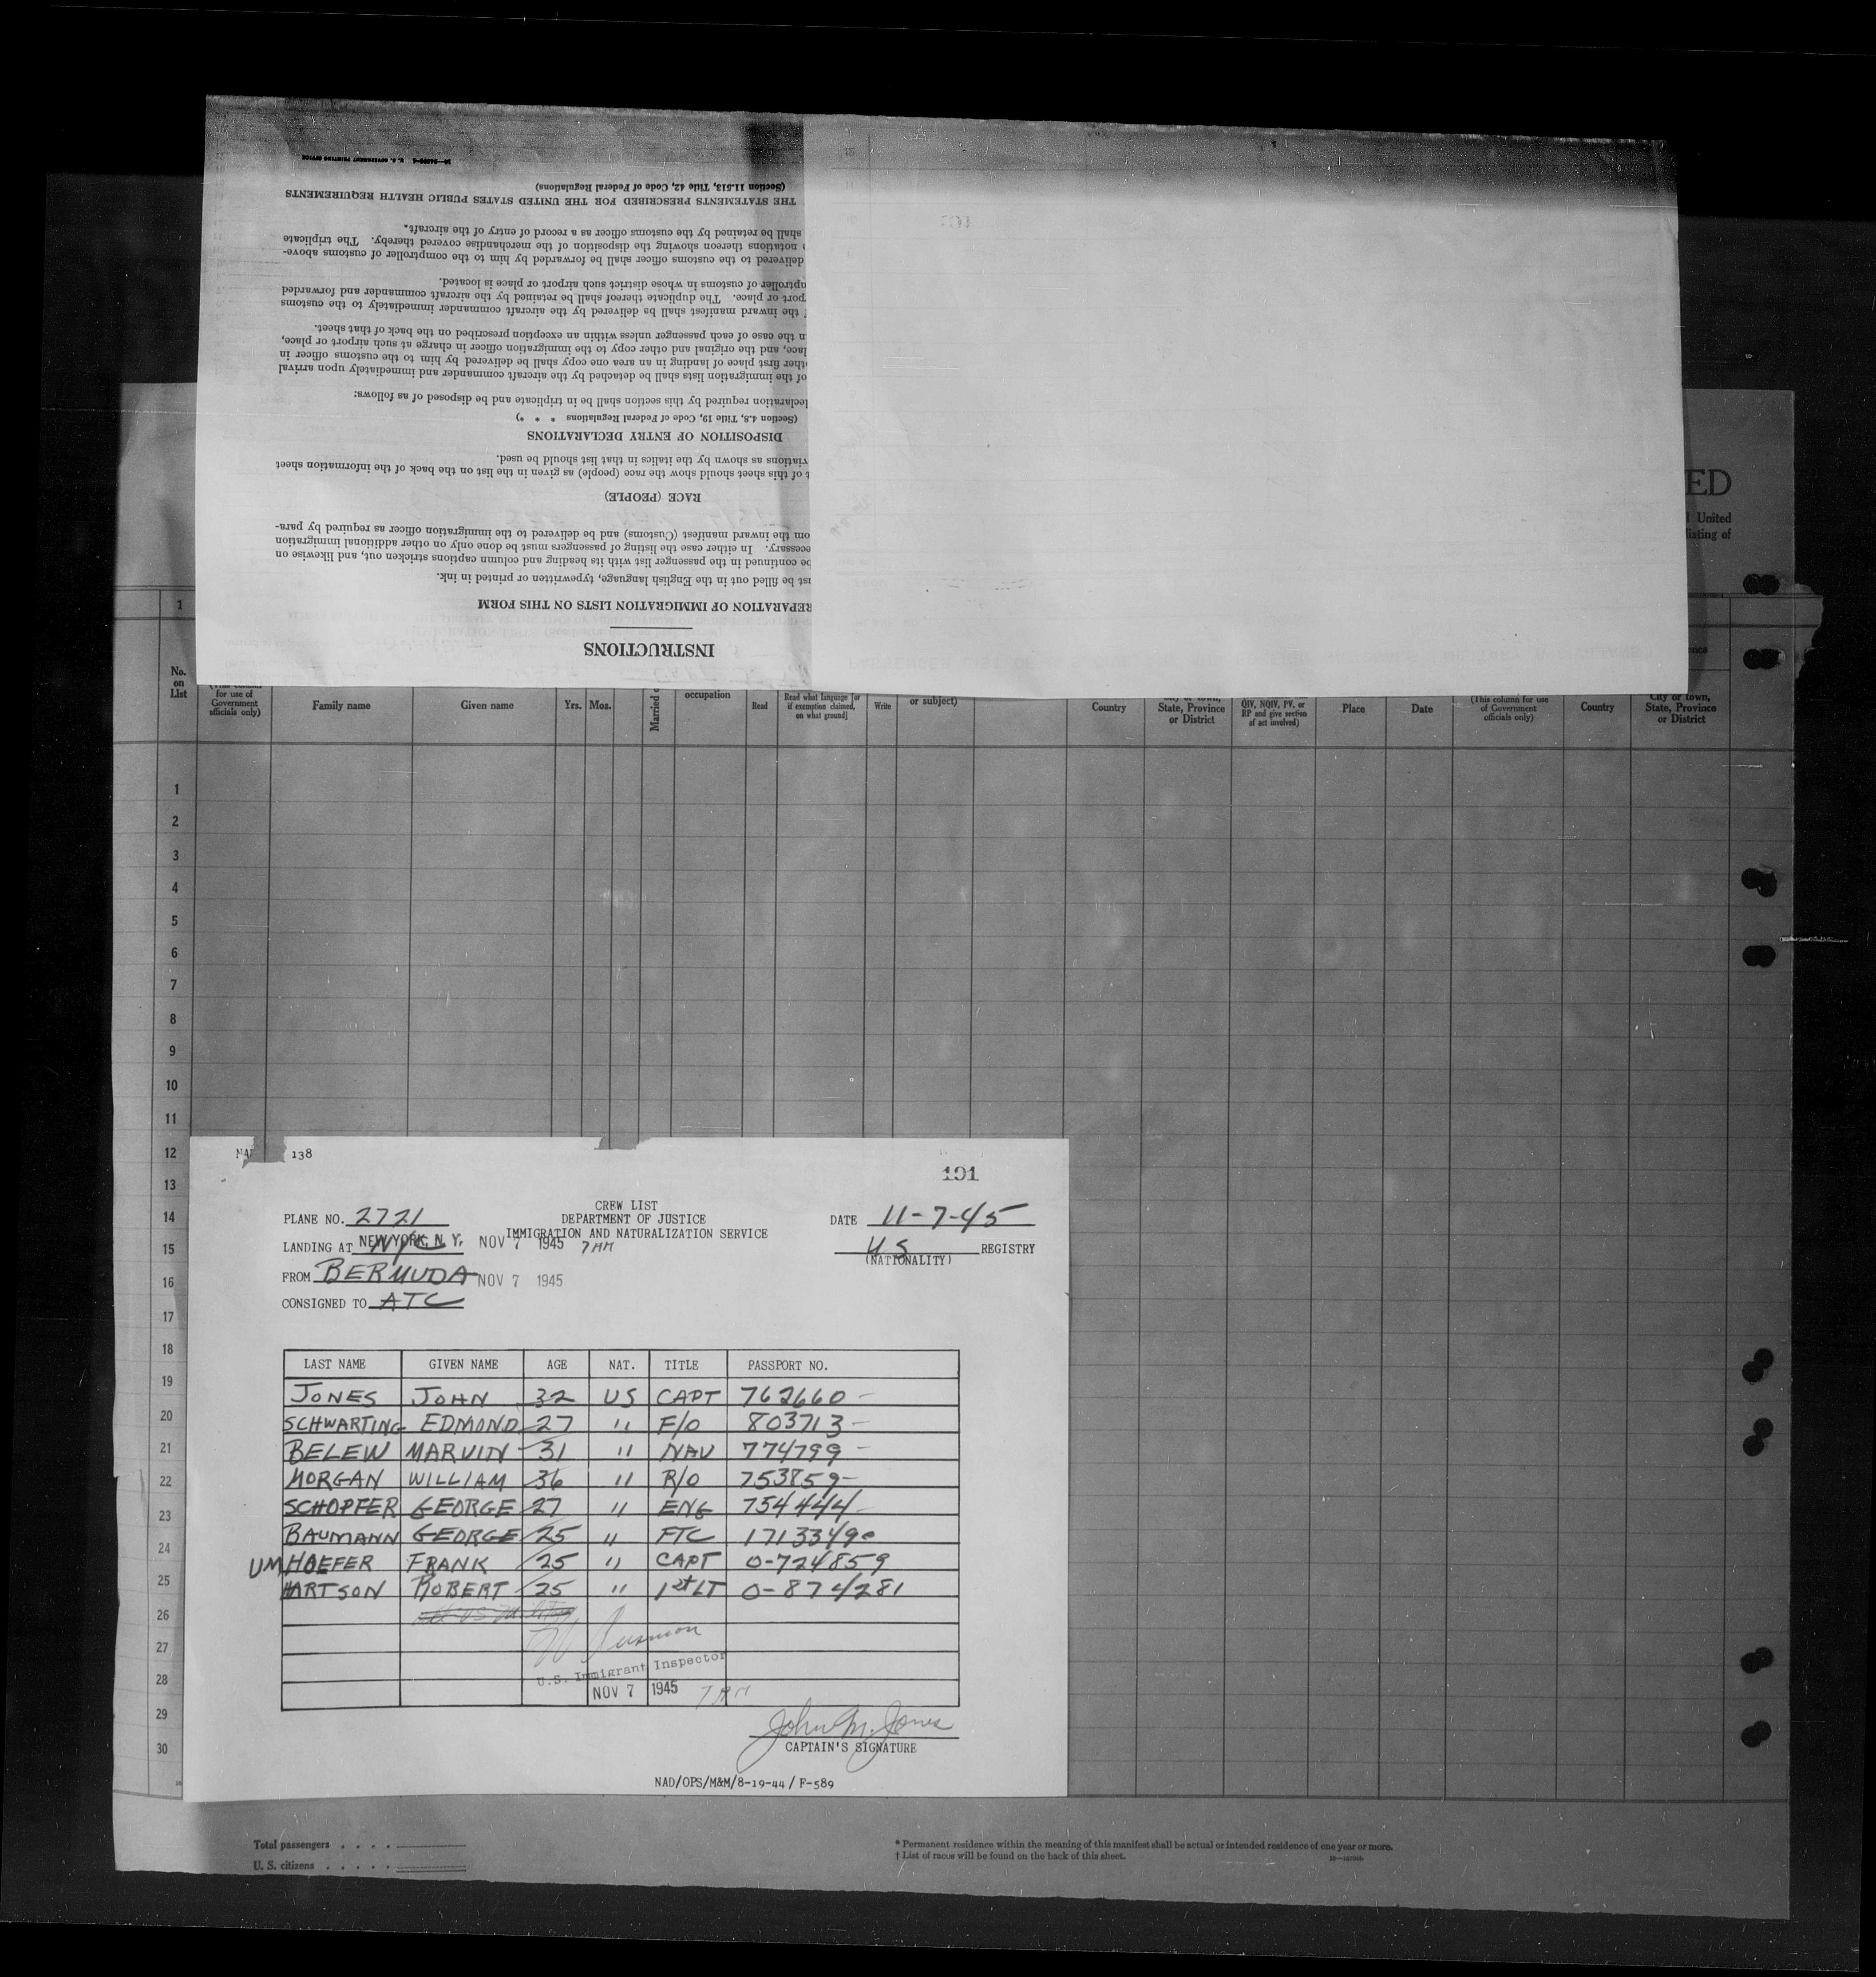 16—24886-1 U. S. GOVERNMENT PRINTING OFFICE
(Section 11.513, Title 42, Code of Federal Regulations)
THE STATEMENTS PRESCRIBED FOR THE UNITED STATES PUBLIC HEALTH REQUIREMENTS
shall be retained by the customs officer as a record of entry of the aircraft.
notations thereon showing the disposition of the merchandise covered thereby. The triplicate
delivered to the customs officer shall be forwarded by him to the comptroller of customs above-
ptroller of customs in whose district such airport or place is located.
port or place. The duplicate thereof shall be retained by the aircraft commander and forwarded
the inward manifest shall be delivered by the aircraft commander immediately to the customs
n the case of each passenger unless within an exception prescribed on the back of that sheet.
lace, and the original and other copy to the immigration officer in charge at such airport or place,
ther first place of landing in an area one copy shall be delivered by him to the customs officer in
of the immigration lists shall be detached by the aircraft commander and immediately upon arrival
declaration required by this section shall be in triplicate and be disposed of as follows:
(Section 4.8, Title 19, Code of Federal Regulations * * *)
DISPOSITION OF ENTRY DECLARATIONS
viations as shown by the italics in that list should be used.
t of this sheet should show the race (people) as given in the list on the back of the information sheet
RACE (PEOPLE)
om the inward manifest (Customs) and be delivered to the immigration officer as required by para-
ecessary. In either case the listing of passengers must be done only on other additional immigration
be continued in the passenger list with its heading and column captions stricken out, and likewise on
ust be filled out in the English language, typewritten or printed in ink.
REPARATION OF IMMIGRATION LISTS ON THIS FORM
INSTRUCTIONS
ED
United
listing of
1
No. on List
for use of Government officials only)
Family name
Given name
Yrs.
Mos.
Married
occupation
Read
Read what language [or if exemption claimed, on what ground]
Write
or subject)
Country
City or town, State, Province or District
QIV, NQIV, PV, or RP and give section of act involved)
Place
Date
(This column for use of Government officials only)
Country
City or town, State, Province or District
1
2
3
4
5
6
7
8
9
10
11
12
13
14
15
16
17
18
19
20
21
22
23
24
25
26
27
28
29
30
138
191
CREW LIST
DEPARTMENT OF JUSTICE
IMMIGRATION AND NATURALIZATION SERVICE
PLANE NO. 2721
DATE 11-7-45
LANDING AT NEW YORK, N. Y. NYC NOV 7 1945 7 AM
US REGISTRY
(NATIONALITY)
FROM BERMUDA NOV 7 1945
CONSIGNED TO ATC
LAST NAME GIVEN NAME AGE NAT. TITLE PASSPORT NO.
JONES JOHN 32 US CAPT 762660 -
SCHWARTING EDMOND 27 " F/O 803713 -
BELEW MARVIN 31 " NAV 774799 -
MORGAN WILLIAM 36 " R/O 753859 -
SCHOPFER GEORGE 27 " ENG 754444 -
BAUMANN GEORGE 25 " FTC 17133490
UMHOEFER FRANK 25 " CAPT 0-724859
HARTSON ROBERT 25 " 1st LT 0-874281
U.S. Immigrant Inspector
NOV 7 1945 7 AM
John M. Jones
CAPTAIN'S SIGNATURE
NAD/OPS/M&M/8-19-44 / F-589
Total passengers . . . .
U. S. citizens . . . . .
* Permanent residence within the meaning of this manifest shall be actual or intended residence of one year or more.
† List of races will be found on the back of this sheet.